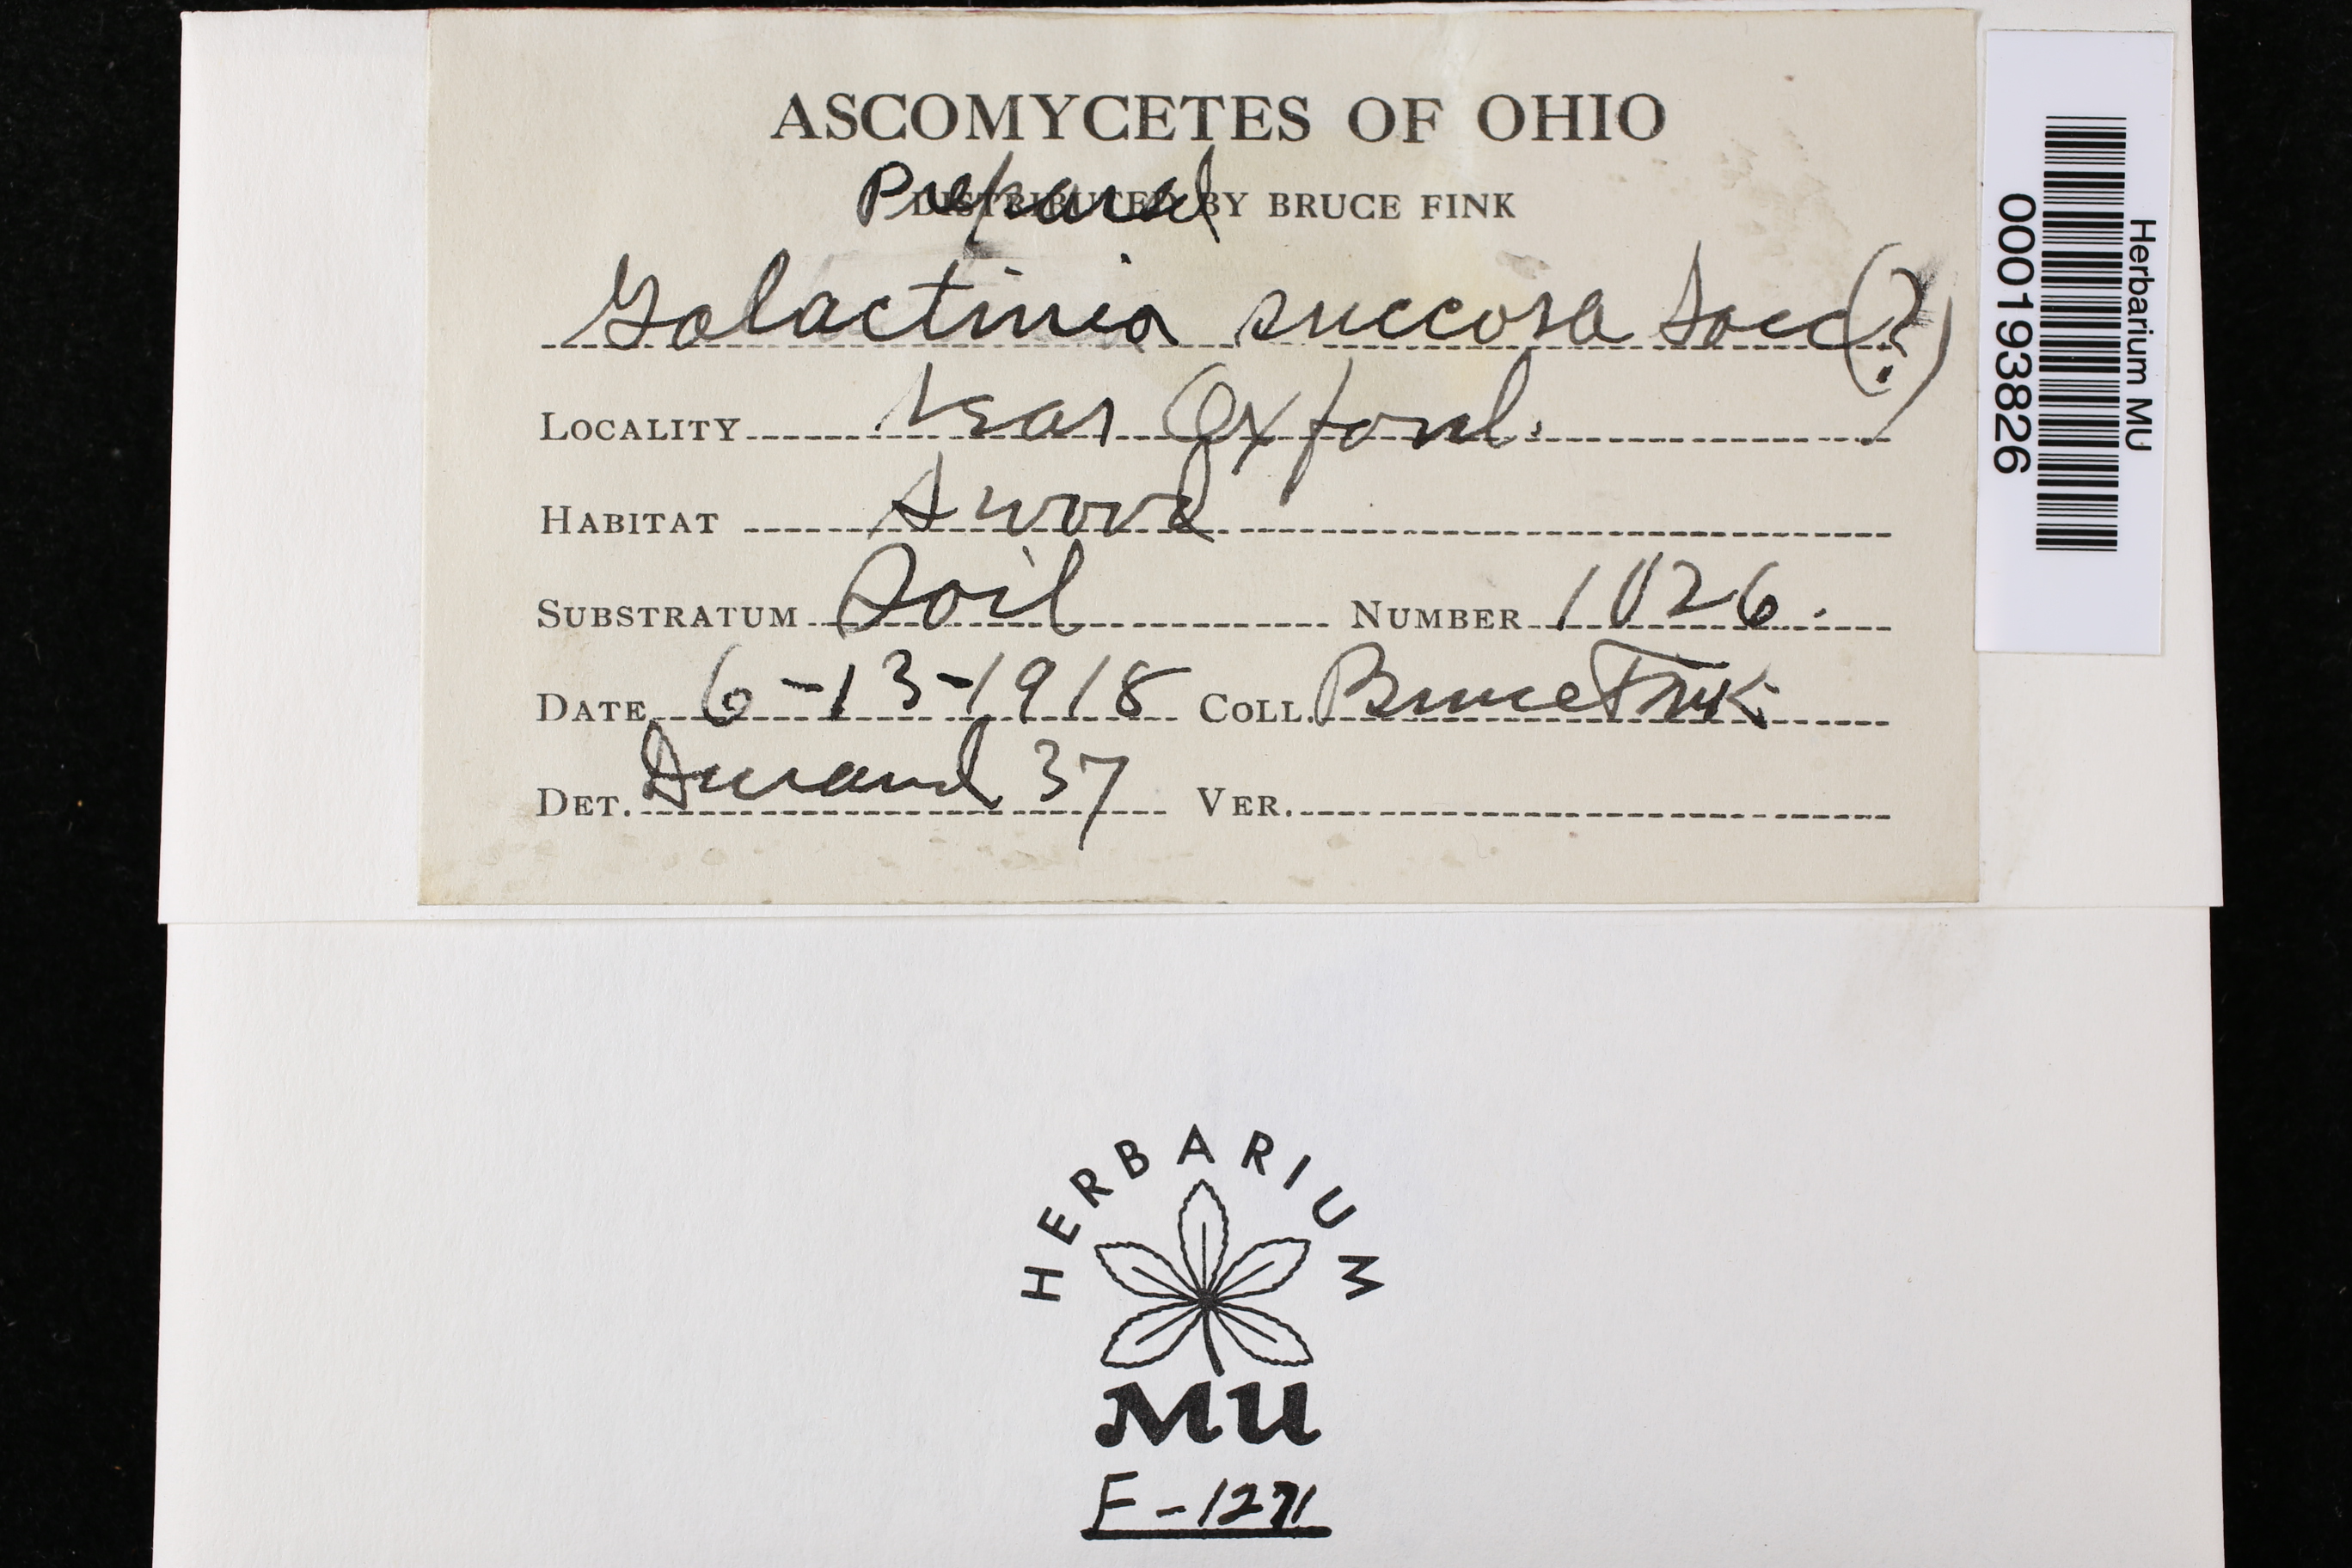 ASCOMYCETES OF OHIO
Prepared
DISTRIBUTED BY BRUCE FINK
Galactinia succosa Sacc(?)
LOCALITY Near Oxford.
HABITAT A wood
SUBSTRATUM Soil NUMBER 1026.
DATE 6-13-1918 COLL. Bruce Fink
DET. Durand 37 VER.
Herbarium MU
000193826
HERBARIUM
MU
F-1271